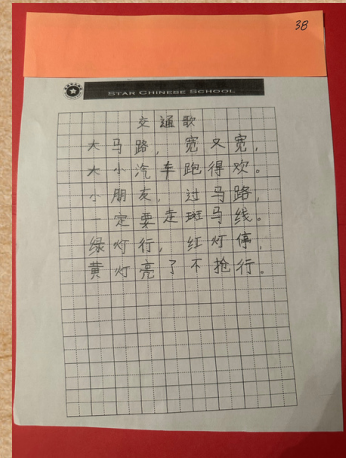 38
STAR CHINESE SCHOOL
交通歌
大马路，宽又宽，
大小汽车跑得欢。
小朋友，过马路，
一定要走斑马线。
绿灯行，红灯停，
黄灯亮了不抢行。